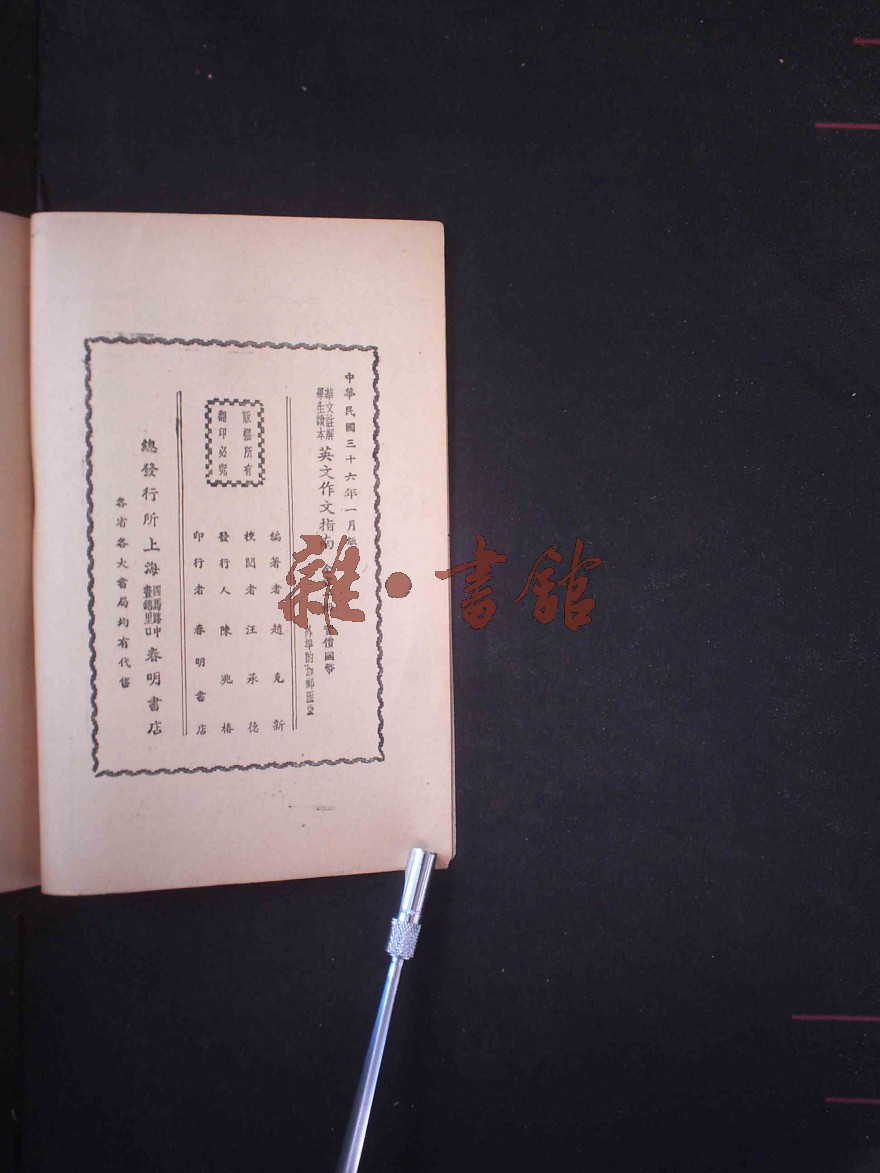 中華民國三十六年一月
華文註解
學生讀本
英文作文指南
實價國幣
外埠酌加郵匯
版權所有
翻印必究
編著者趙克新
校閱者汪承德
發行人陳兆椿
印行者春明書店
總發行所上海
四馬路中
晝錦里口
春明書店
各省各大書局均有代售
雜·書館